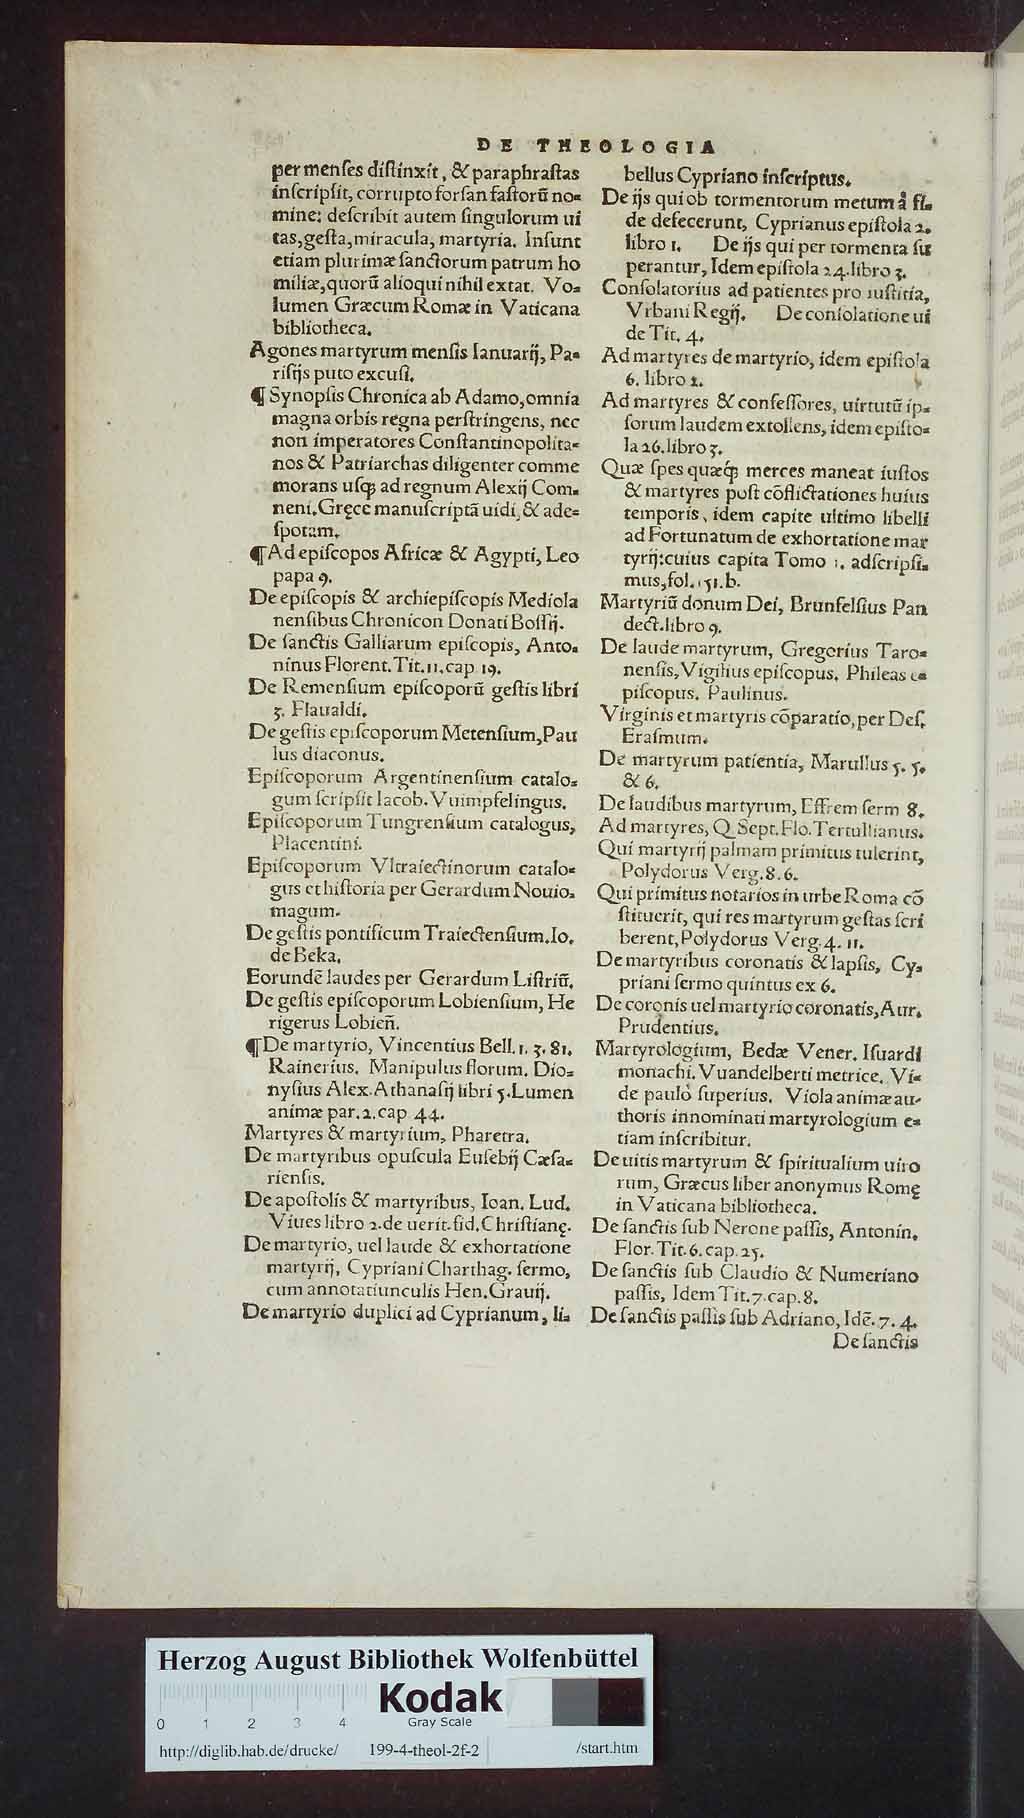 DE THEOLOGIA
per menses distinxit, & paraphrastas
inscripsit, corrupto forsan fastorũ no=
mine: describit autem singulorum ui
tas, gesta, miracula, martyria. Insunt
etiam plurimæ sanctorum patrum ho
miliæ, quorũ alioqui nihil extat. Vo=
lumen Græcum Romæ in Vaticana
bibliotheca.
Agones martyrum mensis Ianuarij, Pa=
risijs puto excusi.
¶ Synopsis Chronica ab Adamo, omnia
magna orbis regna perstringens, nec
non imperatores Constantinopolita=
nos & Patriarchas diligenter comme
morans usq; ad regnum Alexij Com=
neni. Gręce manuscriptã uidi, & ade=
spotam.
¶ Ad episcopos Africæ & Agypti, Leo
papa 9.
De episcopis & archiepiscopis Mediola
nensibus Chronicon Donati Bossij.
De sanctis Galliarum episcopis, Anto=
ninus Florent. Tit. 11. cap. 19.
De Remensium episcoporũ gestis libri
3. Flaualdi.
De gestis episcoporum Metensium, Pau
lus diaconus.
Episcoporum Argentinensium catalo=
gum scripsit Iacob. Vuimpfelingus.
Episcoporum Tungrensium catalogus,
Placentini.
Episcoporum Vltraiectinorum catalo=
gus et historia per Gerardum Nouio=
magum.
De gestis pontificum Traiectensium. Io.
de Beka.
Eorundẽ laudes per Gerardum Listriũ.
De gestis episcoporum Lobiensium, He
rigerus Lobieñ.
¶ De martyrio, Vincentius Bell. 1. 3. 81.
Rainerius. Manipulus florum. Dio=
nysius Alex. Athanasij libri 5. Lumen
animæ par. 2. cap 44.
Martyres & martyrium, Pharetra.
De martyribus opuscula Eusebij Cæsa=
riensis.
De apostolis & martyribus, Ioan. Lud.
Viues libro 2. de uerit. fid. Christianę.
De martyrio, uel laude & exhortatione
martyrij, Cypriani Charthag. sermo,
cum annotatiunculis Hen. Grauij.
De martyrio duplici ad Cyprianum, li=
bellus Cypriano inscriptus.
De ijs qui ob tormentorum metum à fi=
de defecerunt, Cyprianus epistola 2.
libro 1. De ijs qui per tormenta su
perantur, Idem epistola 24. libro 3.
Consolatorius ad patientes pro iustitia,
Vrbani Regij. De consolatione ui
de Tit. 4.
Ad martyres de martyrio, idem epistola
6. libro 2.
Ad martyres & confessores, uirtutũ ip=
sorum laudem extollens, idem episto=
la 26. libro 3.
Quæ spes quæq; merces maneat iustos
& martyres post cõflictationes huius
temporis, idem capite ultimo libelli
ad Fortunatum de exhortatione mar
tyrij: cuius capita Tomo 1. adscripsi=
mus, fol. 151. b.
Martyriũ donum Dei, Brunfelsius Pan
dect. libro 9.
De laude martyrum, Gregorius Taro=
nensis, Vigilius episcopus. Phileas e=
piscopus. Paulinus.
Virginis et martyris cõparatio, per Des.
Erasmum.
De martyrum patientia, Marullus 5. 5.
& 6.
De laudibus martyrum, Effrem serm 8.
Ad martyres, Q. Sept. Flo. Tertullianus.
Qui martyrij palmam primitus tulerint,
Polydorus Verg. 8. 6.
Qui primitus notarios in urbe Roma cõ
stituerit, qui res martyrum gestas scri
berent, Polydorus Verg. 4. 11.
De martyribus coronatis & lapsis, Cy=
priani sermo quintus ex 6.
De coronis uel martyrio coronatis, Aur.
Prudentius.
Martyrologium, Bedæ Vener. Isuardi
monachi. Vuandelberti metrice. Vi=
de paulò superius. Viola animæ au=
thoris innominati martyrologium e=
tiam inscribitur.
De uitis martyrum & spiritualium uiro
rum, Græcus liber anonymus Romę
in Vaticana bibliotheca.
De sanctis sub Nerone passis, Antonin.
Flor. Tit. 6. cap. 25.
De sanctis sub Claudio & Numeriano
passis, Idem Tit. 7. cap. 8.
De sanctis passis sub Adriano, Idẽ. 7. 4.
De sanctis
Herzog August Bibliothek Wolfenbüttel
Kodak
Gray Scale
0 1 2 3 4
http://diglib.hab.de/drucke/ 199-4-theol-2f-2 /start.htm